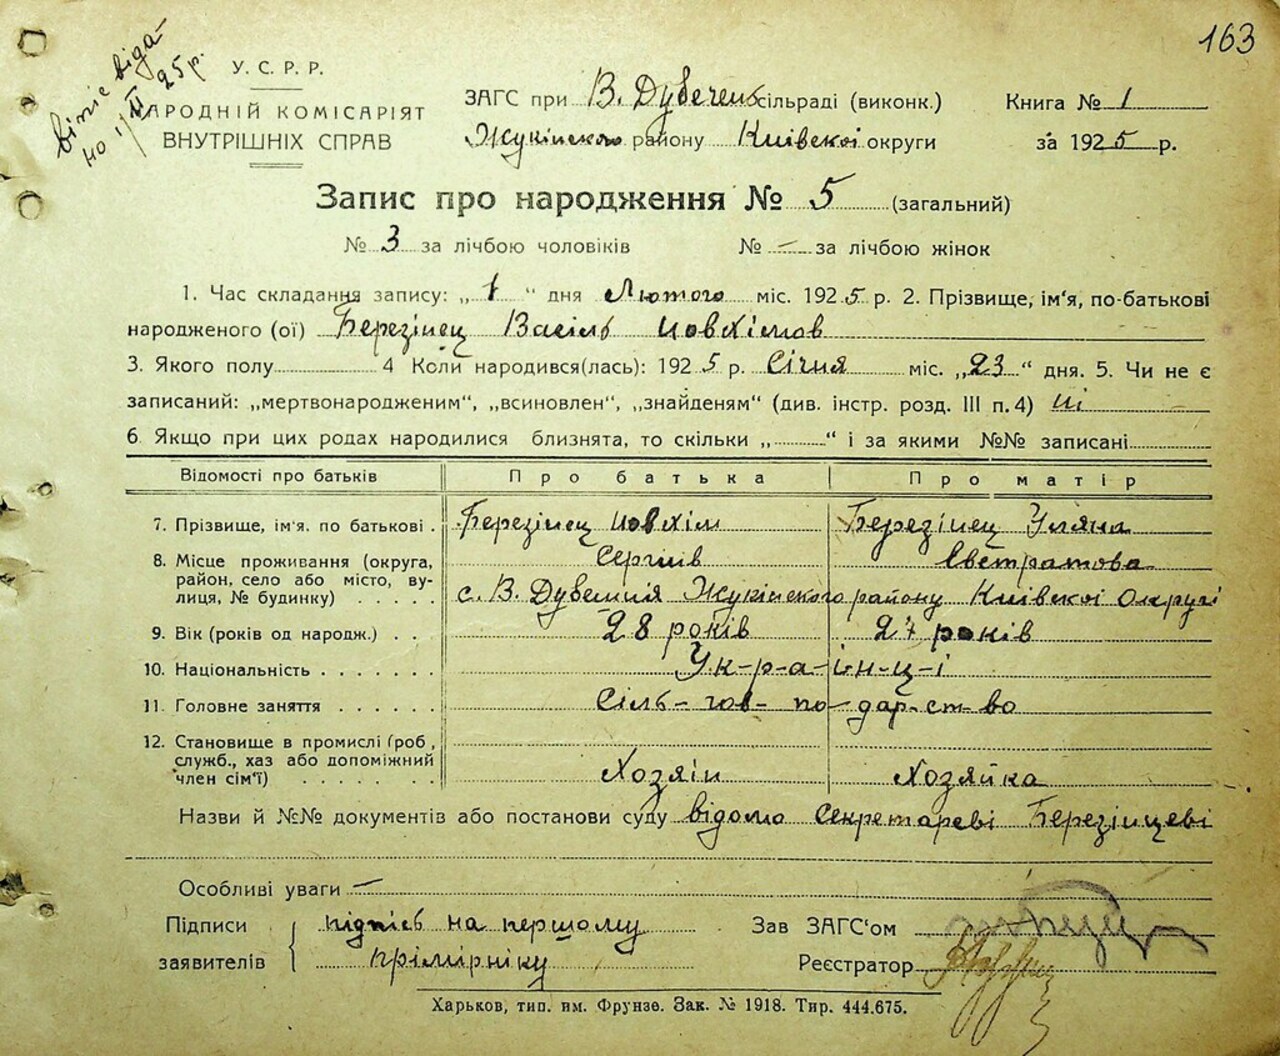 163
У. С. Р. Р.
НАРОДНІЙ КОМІСАРІЯТ
ВНУТРІШНІХ СПРАВ
ЗАГС при В. Дубечен сільраді (виконк.) Книга № 1
Жукінского району Київскоі округи за 1925 р.
Запис про народження № 5 (загальний)
№ 3 за лічбою чоловіків № — за лічбою жінок
1. Час складання запису: „1“ дня Лютого міс. 1925 р. 2. Прізвище, ім'я, по-батькові
народженого (ої) Березінец Васіль Іовхімов
3. Якого полу 4 Коли народився(лась): 1925 р. Січня міс. „23“ дня. 5. Чи не є
записаний: „мертвонародженим“, „всиновлен“, „знайденям“ (див. інстр. розд. III п. 4) ні
6 Якщо при цих родах народилися близнята, то скільки „ “ і за якими №№ записані
Відомості про батьків Про батька Про матір
7. Прізвище, ім'я. по батькові . Березінец Іовхім Березінец Уляна
Сергіїв Євстратова
8. Місце проживання (округа,
район, село або місто, ву-
лиця, № будинку) . . . . . с. В. Дубечня Жукінского району Київскоі Округі
9. Вік (років од народж.) . . 28 років 27 років
10. Національність . . . . . . . Ук-р-а-ін-ц-і
11. Головне заняття . . . . . . Сіль-гос-по-дар-ст-во
12. Становище в промислі (роб,
служб., хаз або допоміжний
член сім'ї) . . . . . . . Хозяін Хозяйка
Назви й №№ документів або постанови суду відомо Секретареві Березінцеві
Особливі уваги —
Підписи підпісь на першому Зав ЗАГС'ом
заявителів прімірніку Реєстратор
Харьков, тип. им. Фрунзе. Зак. № 1918. Тир. 444.675.